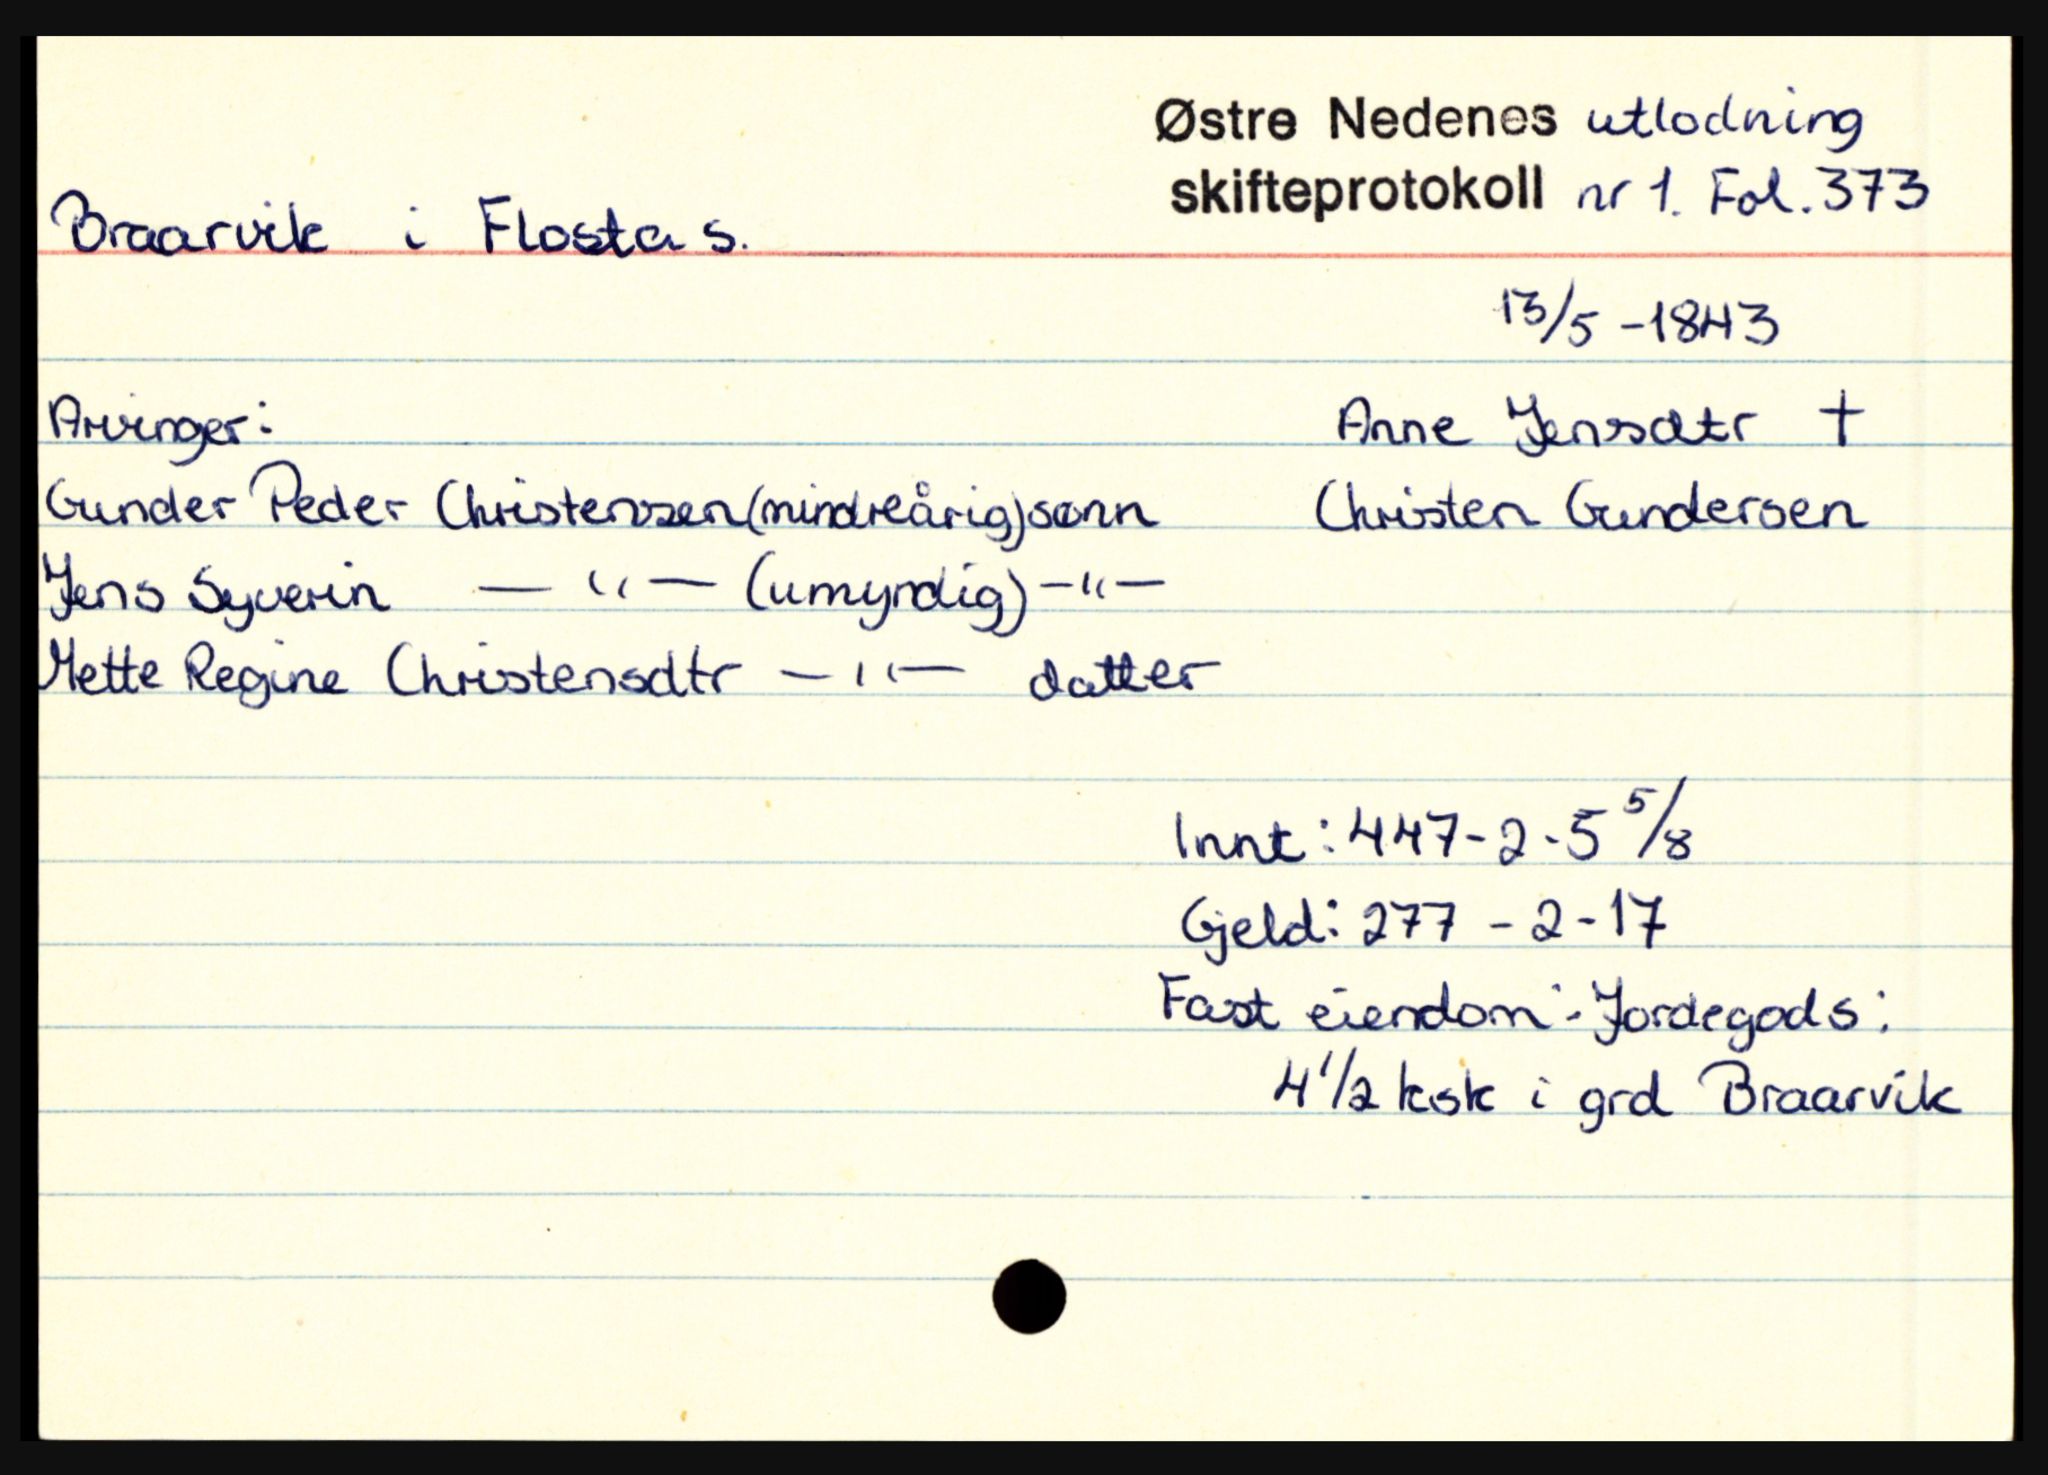 Østre Nedenes utlodning
skifteprotokoll nr 1. Fol. 373
Braarvik i Flosta s.
13/5 - 1843
Arvinger: Anne Jensdtr †
Gunder Peder Christenssen (mindreårig) sønn Christen Gundersen
Jens Syverin — " — (umyndig) - " -
Mette Regine Christensdtr — " — datter
Innt: 447 - 2 - 5 5/8
Gjeld: 277 - 2 - 17
Fast eiendom: - Jordegods:
4 1/2 ksk i grd Braarvik